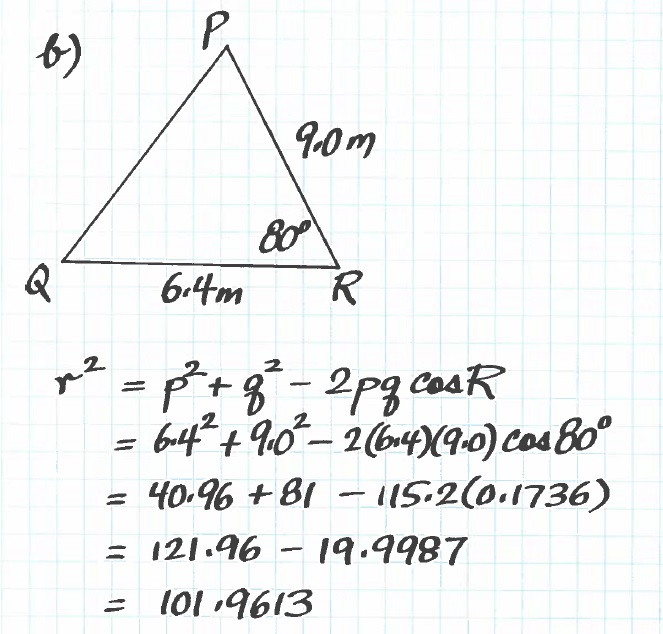 b)
P
9.0m
80°
Q
6.4m
R
r² = p² + q² - 2pq cosR
= 6.4² + 9.0² - 2(6.4)(9.0) cos80°
= 40.96 + 81 - 115.2(0.1736)
= 121.96 - 19.9987
= 101.9613